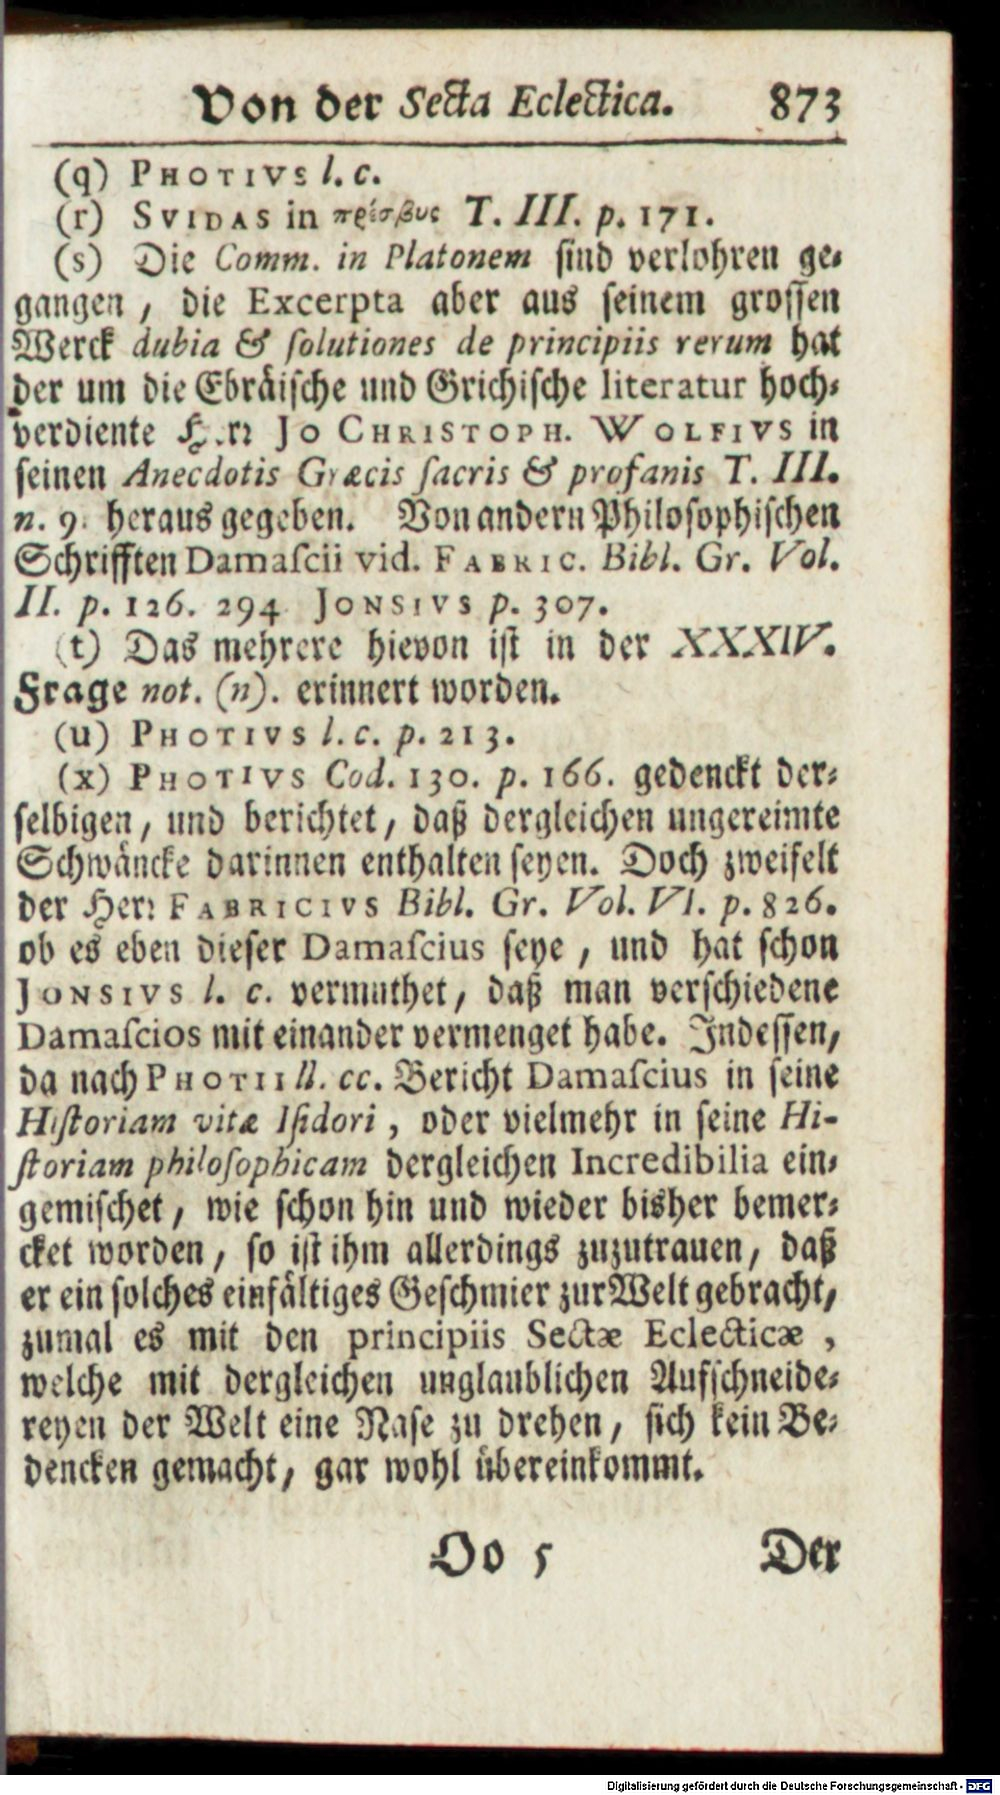 Von der Secta Eclectica. 873
(q) PHOTIVS l. c.
(r) SVIDAS in πρέσβυς T. III. p. 171.
(s) Die Comm. in Platonem sind verlohren ge-
gangen, die Excerpta aber aus seinem grossen
Werck dubia & solutiones de principiis rerum hat
der um die Ebräische und Grichische literatur hoch-
verdiente Herr JO CHRISTOPH. WOLFIVS in
seinen Anecdotis Græcis sacris & profanis T. III.
n. 9. heraus gegeben. Von andern Philosophischen
Schrifften Damascii vid. FABRIC. Bibl. Gr. Vol.
II. p. 126. 294 JONSIVS p. 307.
(t) Das mehrere hievon ist in der XXXIV.
Frage not. (n). erinnert worden.
(u) PHOTIVS l. c. p. 213.
(x) PHOTIVS Cod. 130. p. 166. gedenckt der-
selbigen, und berichtet, daß dergleichen ungereimte
Schwäncke darinnen enthalten seyen. Doch zweifelt
der Herr FABRICIVS Bibl. Gr. Vol. VI. p. 826.
ob es eben dieser Damascius seye, und hat schon
JONSIVS l. c. vermuthet, daß man verschiedene
Damascios mit einander vermenget habe. Indessen,
da nach PHOTII ll. cc. Bericht Damascius in seine
Historiam vitæ Isidori, oder vielmehr in seine Hi-
storiam philosophicam dergleichen Incredibilia ein-
gemischet, wie schon hin und wieder bisher bemer-
cket worden, so ist ihm allerdings zuzutrauen, daß
er ein solches einfältiges Geschmier zur Welt gebracht,
zumal es mit den principiis Sectæ Eclecticæ,
welche mit dergleichen unglaublichen Aufschneide-
reyen der Welt eine Nase zu drehen, sich kein Be-
dencken gemacht, gar wohl übereinkommt.
Oo 5 Der
Digitalisierung gefördert durch die Deutsche Forschungsgemeinschaft - DFG